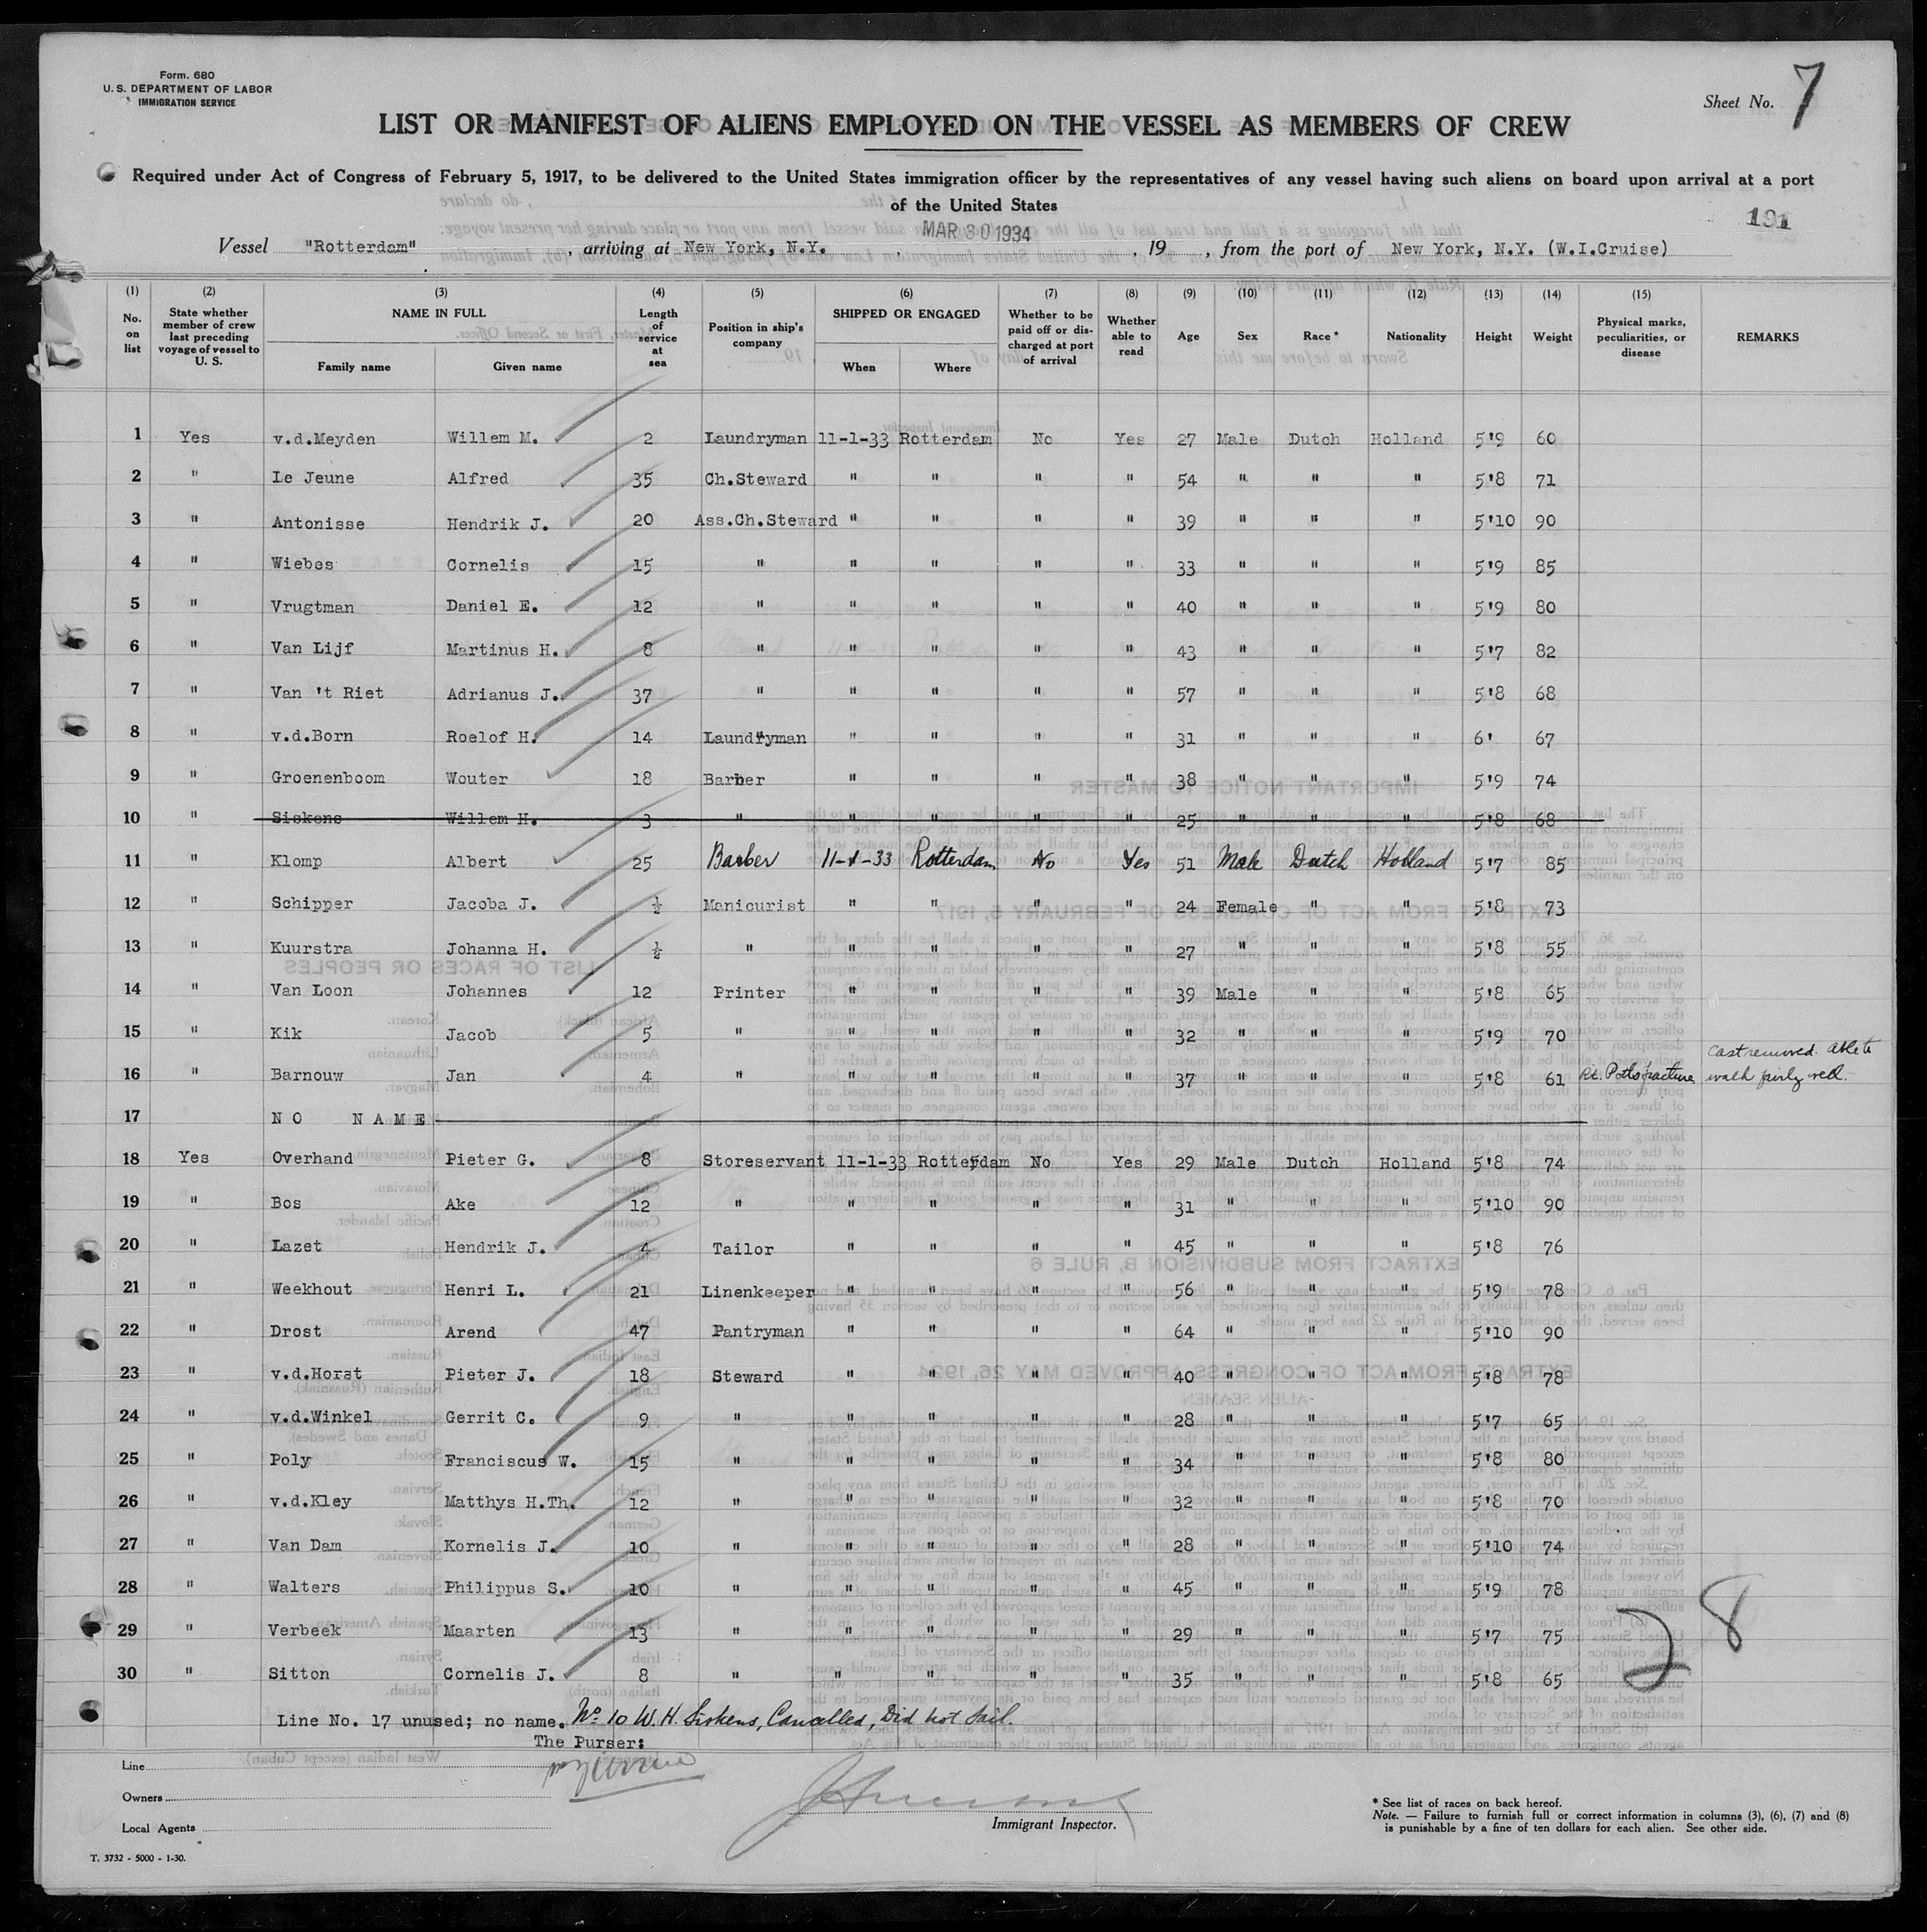 Form. 680
U. S. DEPARTMENT OF LABOR
IMMIGRATION SERVICE
Sheet No. 7
LIST OR MANIFEST OF ALIENS EMPLOYED ON THE VESSEL AS MEMBERS OF CREW
Required under Act of Congress of February 5, 1917, to be delivered to the United States immigration officer by the representatives of any vessel having such aliens on board upon arrival at a port
of the United States
191
Vessel "Rotterdam", arriving at New York, N.Y., MAR 30 1934, 19, from the port of New York, N.Y. (W.I.Cruise)
(1) (2) (3) (4) (5) (6) (7) (8) (9) (10) (11) (12) (13) (14) (15)
No. on list State whether member of crew last preceding voyage of vessel to U. S. NAME IN FULL Family name Given name Length of service at sea Position in ship's company SHIPPED OR ENGAGED When Where Whether to be paid off or discharged at port of arrival Whether able to read Age Sex Race * Nationality Height Weight Physical marks, peculiarities, or disease REMARKS
1 Yes v.d.Meyden Willem M. 2 Laundryman 11-1-33 Rotterdam No Yes 27 Male Dutch Holland 5'9 60
2 " Le Jeune Alfred 35 Ch.Steward " " " " 54 " " " 5'8 71
3 " Antonisse Hendrik J. 20 Ass.Ch.Steward " " " " 39 " " " 5'10 90
4 " Wiebes Cornelis 15 " " " " " 33 " " " 5'9 85
5 " Vrugtman Daniel E. 12 " " " " " 40 " " " 5'9 80
6 " Van Lijf Martinus H. 8 " " " " " 43 " " " 5'7 82
7 " Van 't Riet Adrianus J. 37 " " " " " 57 " " " 5'8 68
8 " v.d.Born Roelof H. 14 Laundryman " " " " 31 " " " 6' 67
9 " Groenenboom Wouter 18 Barber " " " " 38 " " " 5'9 74
10 " Siskens Willem H. 3 " " " " " 25 " " " 5'8 68
11 " Klomp Albert 25 Barber 11-1-33 Rotterdam No Yes 51 Male Dutch Holland 5'7 85
12 " Schipper Jacoba J. ½ Manicurist " " " " 24 Female " " 5'8 73
13 " Kuurstra Johanna H. ½ " " " " " 27 " " " 5'8 55
14 " Van Loon Johannes 12 Printer " " " " 39 Male " " 5'8 65
15 " Kik Jacob 5 " " " " " 32 " " " 5'9 70
16 " Barnouw Jan 4 " " " " " 37 " " " 5'8 61 Rt. Potts fracture Cast removed. Able to walk fairly well.
17 NO NAME
18 Yes Overhand Pieter G. 8 Storeservant 11-1-33 Rotterdam No Yes 29 Male Dutch Holland 5'8 74
19 " Bos Ake 12 " " " " " 31 " " " 5'10 90
20 " Lazet Hendrik J. 4 Tailor " " " " 45 " " " 5'8 76
21 " Weekhout Henri L. 21 Linenkeeper " " " " 56 " " " 5'9 78
22 " Drost Arend 47 Pantryman " " " " 64 " " " 5'10 90
23 " v.d.Horst Pieter J. 18 Steward " " " " 40 " " " 5'8 78
24 " v.d.Winkel Gerrit C. 9 " " " " " 28 " " " 5'7 65
25 " Poly Franciscus W. 15 " " " " " 34 " " " 5'8 80
26 " v.d.Kley Matthys H.Th. 12 " " " " " 32 " " " 5'8 70
27 " Van Dam Kornelis J. 10 " " " " " 28 " " " 5'10 74
28 " Walters Philippus S. 10 " " " " " 45 " " " 5'9 78
29 " Verbeek Maarten 13 " " " " " 29 " " " 5'7 75
30 " Sitton Cornelis J. 8 " " " " " 35 " " " 5'8 65
28
Line No. 17 unused; no name. No. 10 W.H. Siskens, Cancelled, Did not Sail.
The Purser:
Line
Owners
Local Agents
Immigrant Inspector.
* See list of races on back hereof.
Note. — Failure to furnish full or correct information in columns (3), (6), (7) and (8)
is punishable by a fine of ten dollars for each alien. See other side.
T. 3732 - 5000 - 1-30.